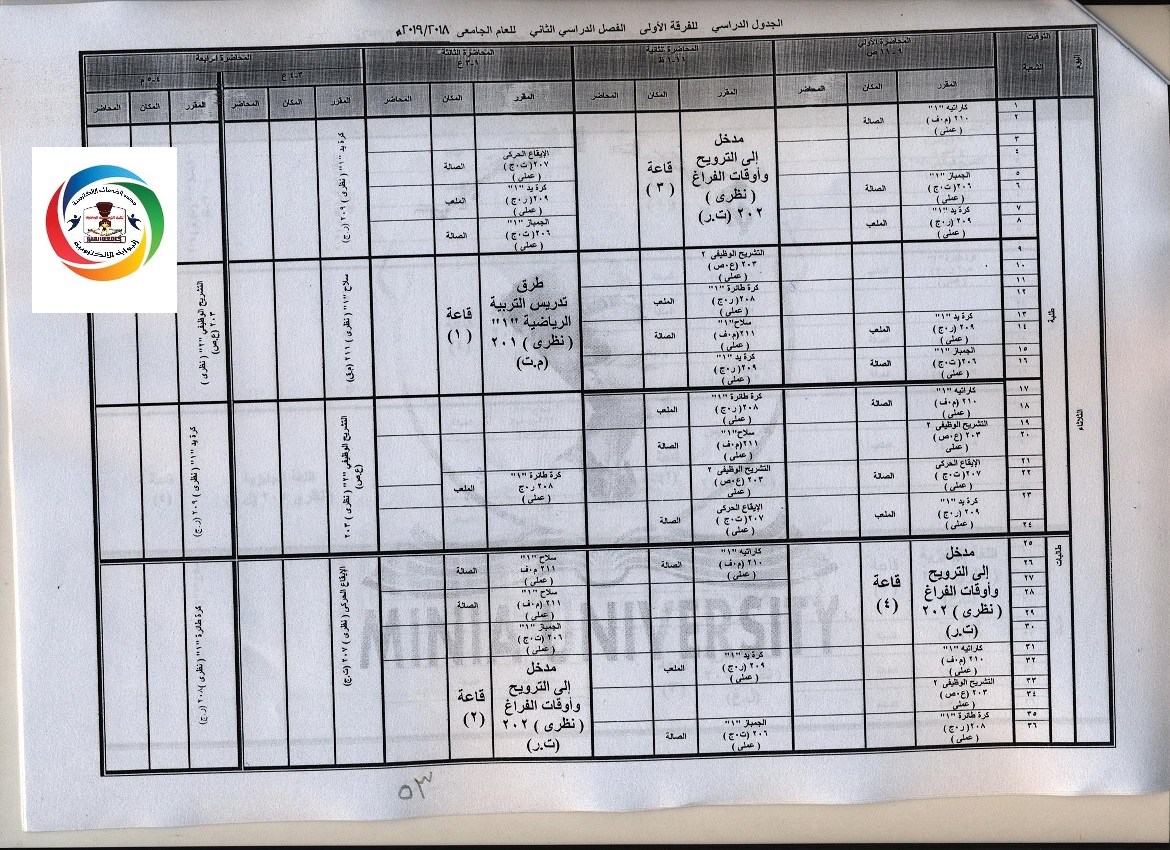 الجدول الدراسي للفرقة الأولى الفصل الدراسي الثاني للعام الجامعى ٢٠١٩/٢٠١٨م
اليوم
التوقيت
الشعبة
المحاضرة الأولى
٩-١١ ص
المحاضرة الثانية
١١-١ ظ
المحاضرة الثالثة
١-٣ ع
المحاضرة الرابعة
٣-٤ ع
٤-٥ م
المقرر المكان المحاضر
المقرر المكان المحاضر
المقرر المكان المحاضر
المقرر المكان المحاضر
المقرر المكان المحاضر
الثلاثاء
طلبة
١
٢
كاراتيه "١"
٢١٠ (م.ف)
(عملى)
الصالة
مدخل
إلى الترويح
وأوقات الفراغ
( نظرى )
٢٠٢ (ت.ر)
قاعة
( ٣ )
كرة يد "١" ( نظرى ) ٢٠٩ (ر.ج)
٣
٤
الإيقاع الحركى
٢٠٧ (ت.ج)
(عملى)
الصالة
٥
٦
الجمباز "١"
٢٠٦ (ت.ج)
(عملى)
الصالة
كرة يد "١"
٢٠٩ (ر.ج)
(عملى)
الملعب
٧
٨
كرة يد "١"
٢٠٩ (ر.ج)
(عملى)
الملعب
الجمباز "١"
٢٠٦ (ت.ج)
(عملى)
الصالة
٩
١٠
التشريح الوظيفى ٢
٢٠٣ (ع.ص)
(عملى)
طرق
تدريس التربية
الرياضية "١"
( نظرى ) ٢٠١
(م.ت)
قاعة
( ١ )
سلاح "١" ( نظرى ) ٢١١
التشريح الوظيفي "٢" ( نظرى )
٢٠٣ (ع.ص)
١١
١٢
كرة طائرة "١"
٢٠٨ (ر.ج)
(عملى)
الملعب
١٣
١٤
كرة يد "١"
٢٠٩ (ر.ج)
(عملى)
الملعب
سلاح "١"
٢١١ (م.ف)
(عملى)
الصالة
١٥
١٦
الجمباز "١"
٢٠٦ (ت.ج)
(عملى)
الصالة
كرة يد "١"
٢٠٩ (ر.ج)
(عملى)
١٧
١٨
كاراتيه "١"
٢١٠ (م.ف)
(عملى)
الصالة
كرة طائرة "١"
٢٠٨ (ر.ج)
(عملى)
الملعب
التشريح الوظيفي "٢" ( نظرى ) ٢٠٣
(ع.ص)
كرة يد "١" ( نظرى ) ٢٠٩ (ر.ج)
١٩
٢٠
التشريح الوظيفى ٢
٢٠٣ (ع.ص)
(عملى)
سلاح "١"
٢١١ (م.ف)
(عملى)
الصالة
٢١
٢٢
الإيقاع الحركى
٢٠٧ (ت.ج)
(عملى)
الصالة
التشريح الوظيفى ٢
٢٠٣ (ع.ص)
(عملى)
كرة طائرة "١"
٢٠٨ ر.ج
(عملى)
الملعب
٢٣
٢٤
كرة يد "١"
٢٠٩ (ر.ج)
(عملى)
الملعب
الإيقاع الحركى
٢٠٧ (ت.ج)
(عملى)
الصالة
طالبات
٢٥
٢٦
٢٧
٢٨
٢٩
٣٠
مدخل
إلى الترويح
وأوقات الفراغ
( نظرى ) ٢٠٢
(ت.ر)
قاعة
(٤)
كاراتيه "١"
٢١٠ (م.ف)
(عملى)
الصالة
سلاح "١"
٢١١ م.ف
(عملى)
الصالة
سلاح "١"
٢١١ (م.ف)
(عملى)
الصالة
الجمباز "١"
٢٠٦ (ت.ج)
(عملى)
الإيقاع الحركى ( نظرى ) ٢٠٧ (ت.ج)
كرة طائرة "١" ( نظرى ) ٢٠٨ (ر.ج)
٣١
٣٢
كاراتيه "١"
٢١٠ (م.ف)
(عملى)
كرة يد "١"
٢٠٩ (ر.ج)
(عملى)
الملعب
مدخل
إلى الترويح
وأوقات الفراغ
( نظرى ) ٢٠٢
(ت.ر)
قاعة
(٢)
٣٣
٣٤
التشريح الوظيفى ٢
٢٠٣ (ع.ص)
(عملى)
٣٥
٣٦
كرة طائرة "١"
٢٠٨ (ر.ج)
(عملى)
الجمباز "١"
٢٠٦ (ت.ج)
(عملى)
الصالة
MINIA UNIVERSITY
٥٣
البوابة الإلكترونية